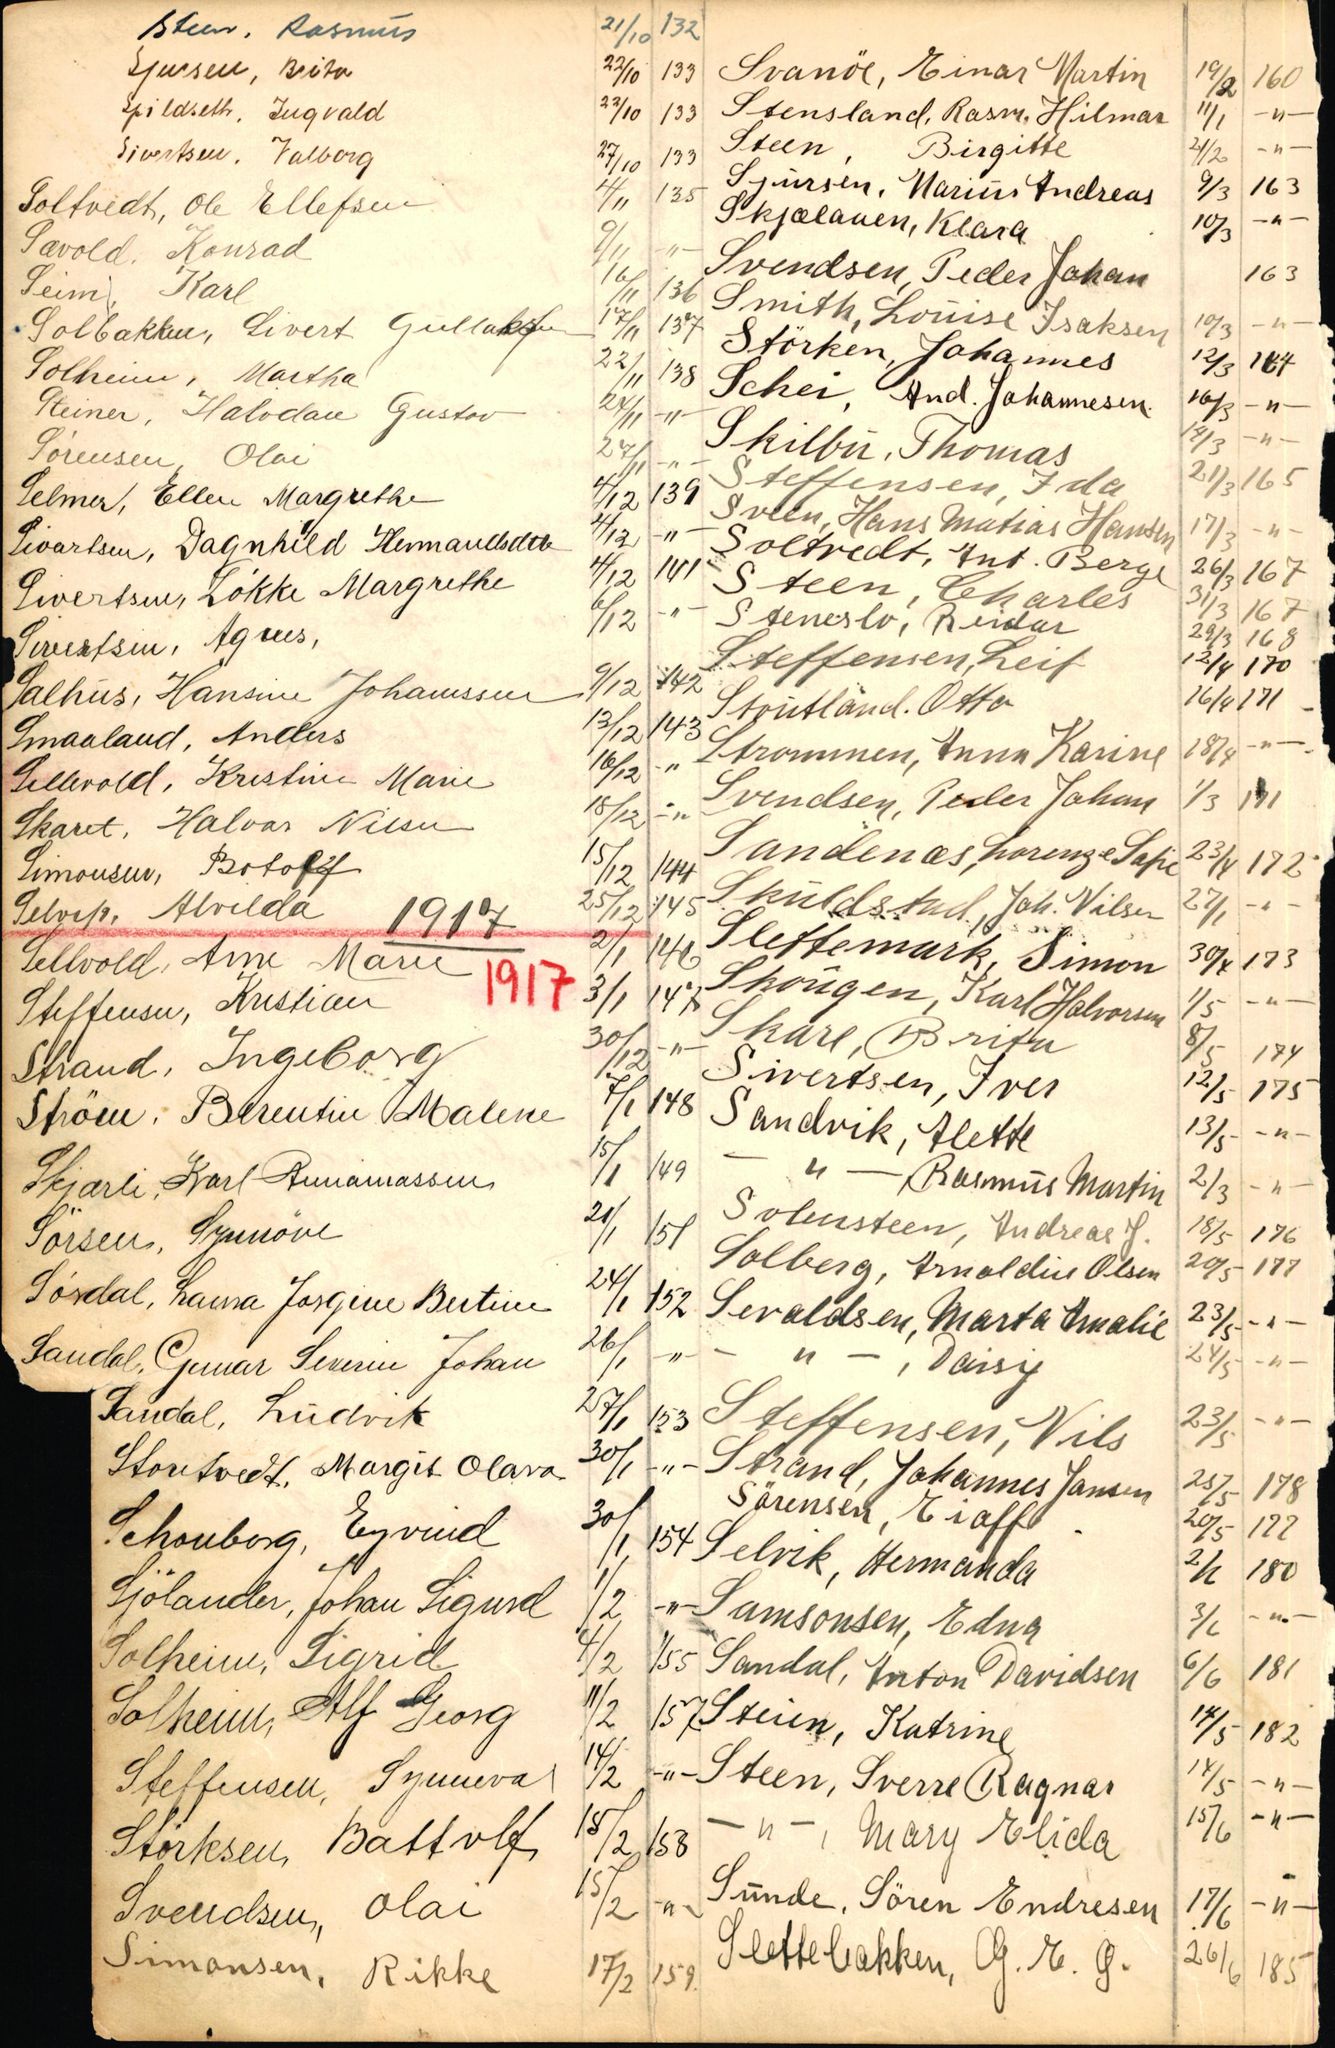 Steen, Rasmus 21/10 132
Sjursen, Brita 22/10 133
Spildseth, Ingvald 23/10 133
Sivertsen, Valborg 27/10 133
Soltvedt, Ole Ellefsen 4/11 135
Sævold, Konrad 9/11 -"-
Seim, Karl 16/11 136
Solbakken, Sivert Gullaksen 17/11 137
Solheim, Martha 22/11 138
Steiner, Halvdan Gustav 24/11 -"-
Sörensen, Olai 27/11 -"-
Selmer, Ellen Margrethe 4/12 139
Sivartsen, Dagnhild Hermandsdtr 4/12 -"-
Sivertsen, Lökke Margrethe 4/12 141
Sivertsen, Agnes, 6/12 -"-
Salhus, Hansine Johanssen 9/12 142
Smaaland, Anders 13/12 143
Sellevold, Kristine Marie 16/12 -"-
Skaret, Halvar Nilsen 18/12 -"-
Simonsen, Botolf 15/12 144
Selvip, Alvilda 25/12 145
1917
Sellvold, Arne Marie 2/1 146
1917
Steffensen, Kristian 3/1 147
Strand, Ingeborg 30/12 -"-
Ström, Berentine Malene 7/1 148
Skjærli, Karl Annanassen 15/1 149
Sörsen, Synnöve 21/1 151
Sösdal, Laura Josgine Bertine 24/1 152
Sandal, Gunnar Severin Johan 26/1 -"-
Sandal, Ludvik 27/1 153
Stontvedt, Margit Olava 30/1 -"-
Schonberg, Eyvind 30/1 154
Sjölander, Johan Sigurd 1/2 -"-
Solheim, Sigrid 4/2 155
Solheim, Alf Georg 11/2 157
Steffensen, Synneva 14/2 -"-
Störksen, Battolf 15/2 158
Svendsen, Olai 15/2 -"-
Simonsen, Rikke 17/2 159
Svanöe, Einar Martin 19/2 160
Stensland, Rasm. Hilmar 11/1 -"-
Steen, Birgitte 21/2 -"-
Sjursen, Marius Andreas 9/3 163
Skjælauen, Klara 10/3 -"-
Svendsen, Peder Johan 163
Smith, Louise Isaksen 10/3 -"-
Störken, Johannes 12/3 164
Schei, And. Johannesen 16/3 -"-
Skilbu, Thomas 14/3 -"-
Steffensen, Ida 21/3 165
Sveen, Hans Matias Hansen 17/3 -"-
Soltvedt, Ant. Berge 26/3 167
Steen, Charles 31/3 167
Steneslv, Reidar 29/3 168
Steffensen, Leif 12/4 170
Stoutland, Otto 16/4 171
Strommen, Anna Karine 18/4 -"-
Svendsen, Peder Johan 1/3 171
Sandenæs, Lorenze Sofie 23/4 172
Skuldstad, Joh. Nilsen 27/1 -"-
Slettemark, Simon 30/4 173
Skougen, Karl Halvorsen 1/5 -"-
Skare, Brita 8/5 174
Sivertsen, Iver 12/5 175
Sandvik, Alette 13/5 -"-
-"-, Rasmus Martin 2/3 -"-
Solensteen, Andreas J. 18/5 176
Solberg, Arnoldine Olsen 20/5 177
Sevaldsen, Marta Amalie 23/5 -"-
-"-, Daisy 24/5 -"-
Steffensen, Nils 23/5 -"-
Strand, Johannes Jansen 25/5 178
Sörensen, Eiaff 20/5 177
Selvik, Hermanda 2/6 180
Samsonsen, Edna 3/6 -"-
Sandal, Anton Davidsen 6/6 181
Steien, Katrine 14/5 182
Steen, Sverre Ragnar 14/5 -"-
-"-, Mary Elida 15/6 -"-
Sunde, Sören Endresen 17/6 -"-
Slettebakken, G. E. G. 26/6 185